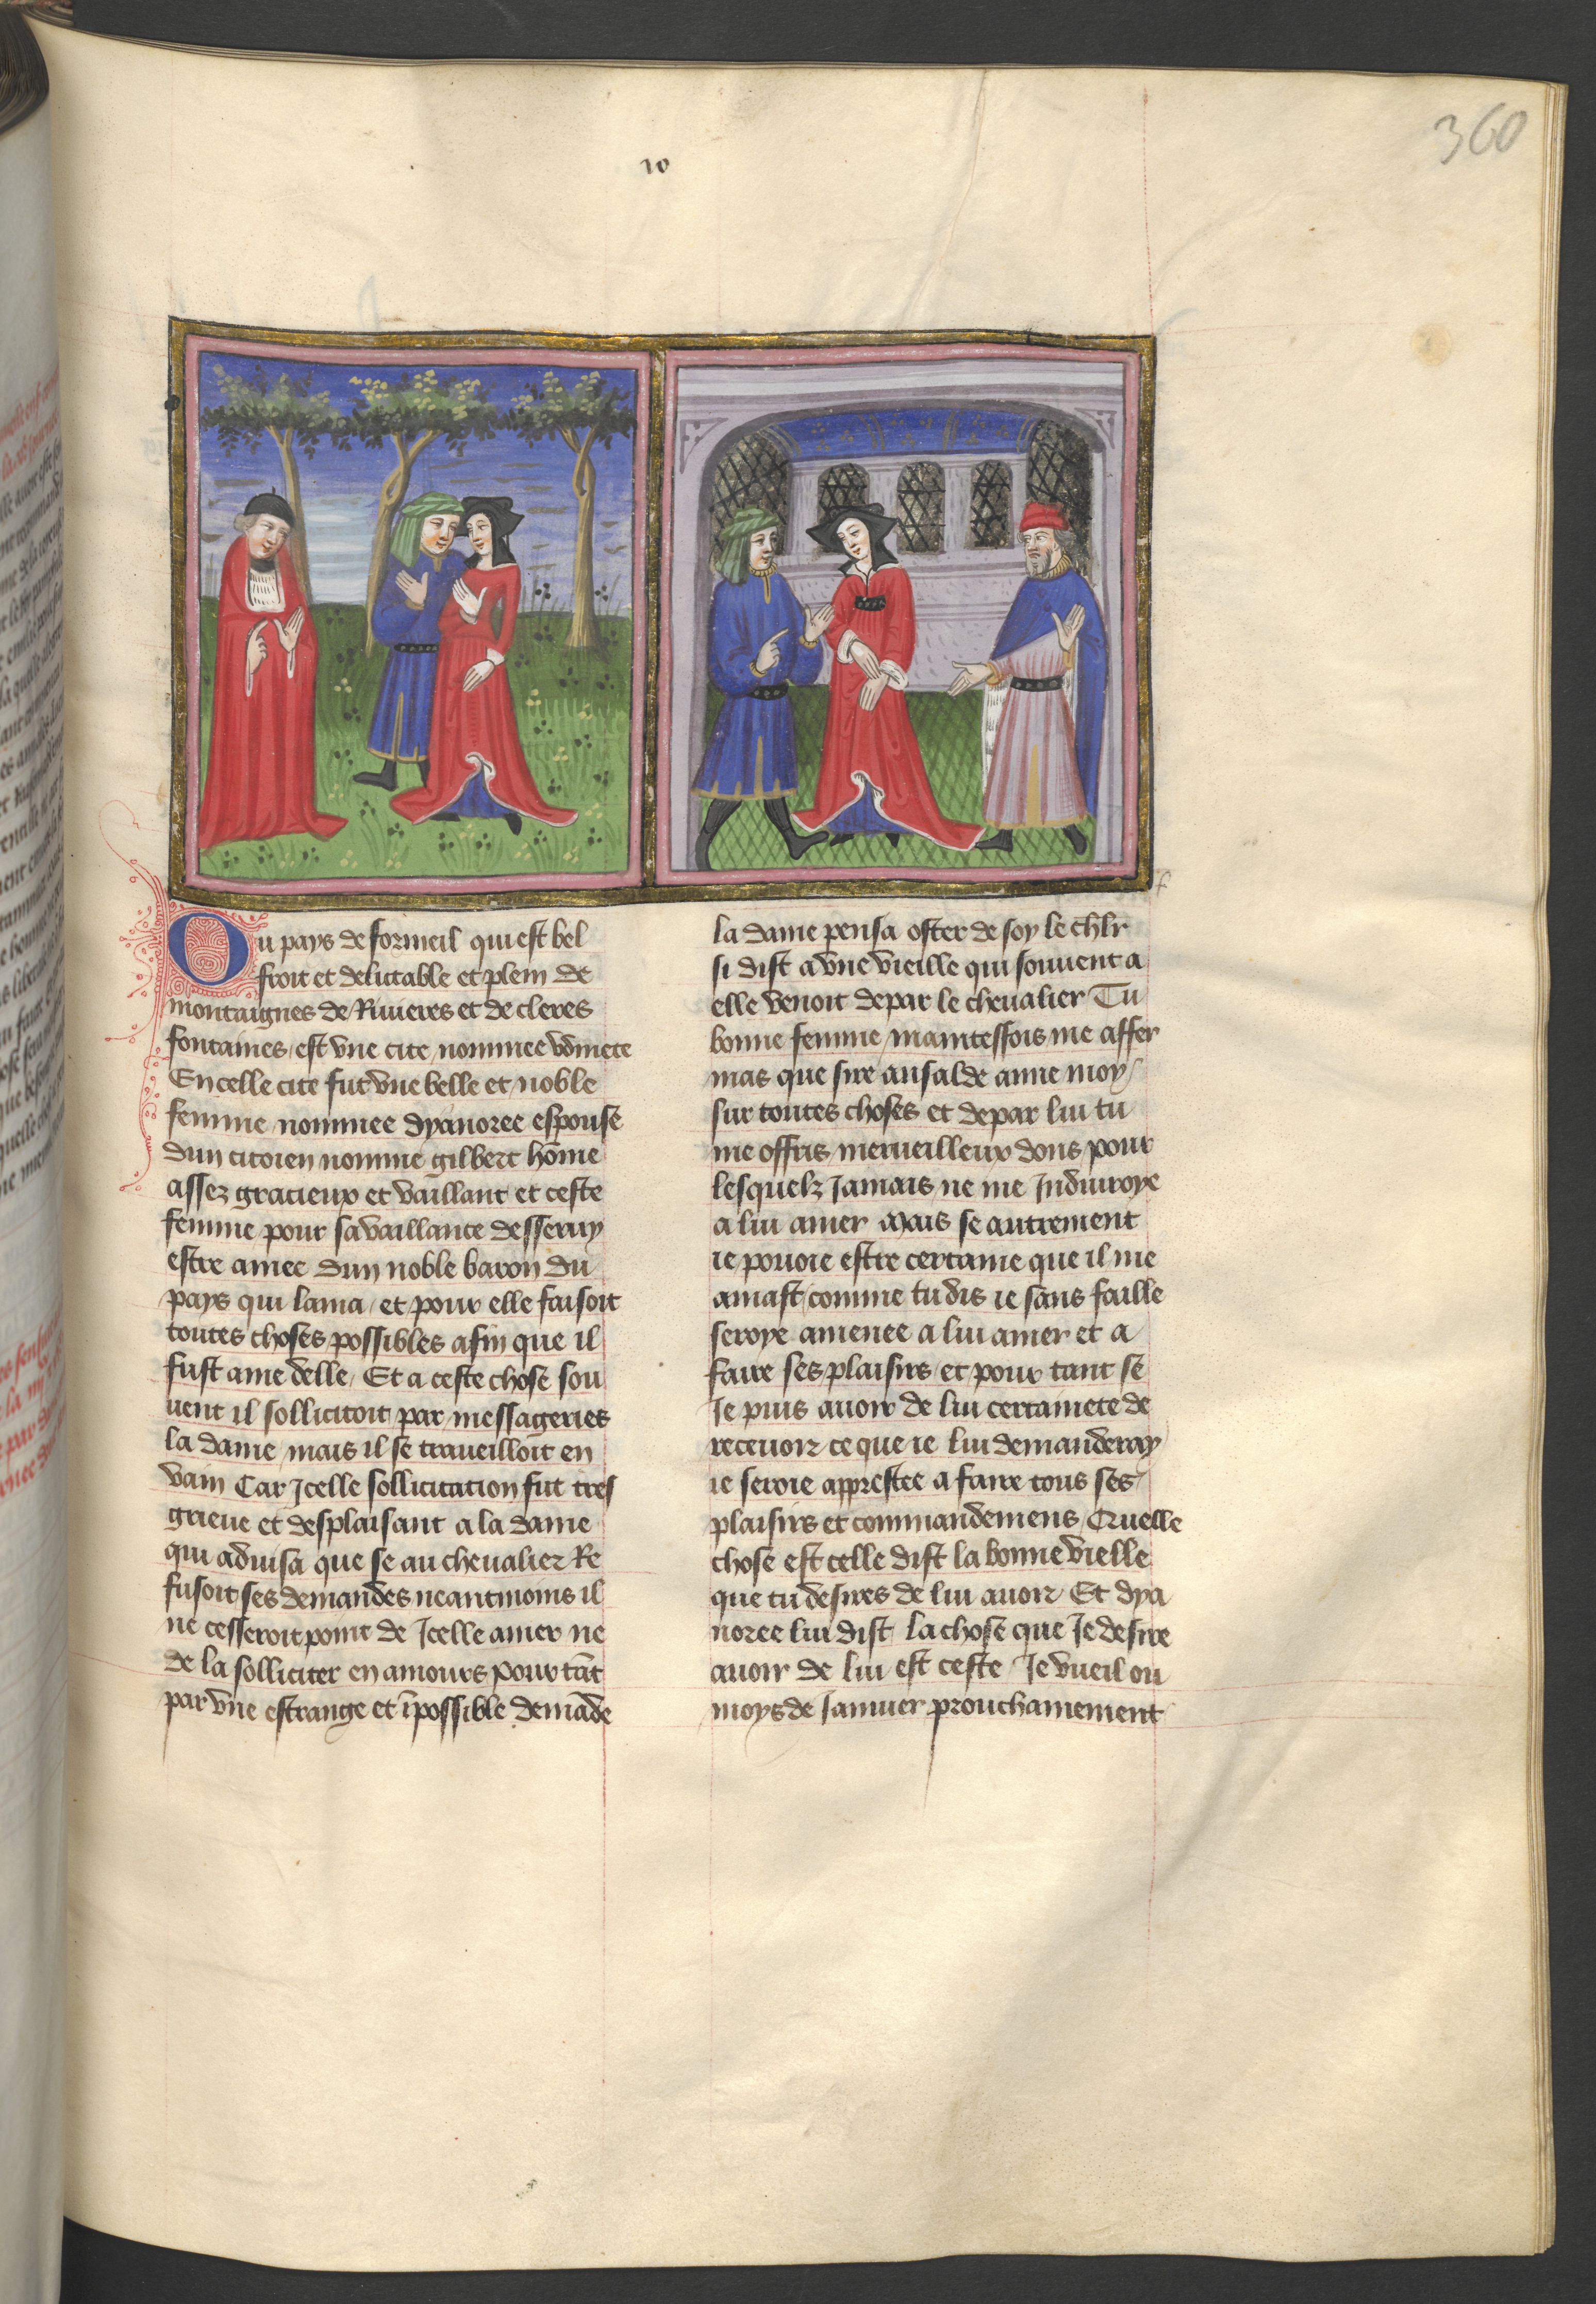 360
10
Ou pays de formeil qui est bel
froit et delittable et plein de
montaignes de Riuieres et de cleres
fontaines est vne cite nommee vdinete
En celle cite fut vne belle et noble
femme nommee dyanoree espouse
dun citoien nomme gilbert hōme
assez gracieux et vaillant et ceste
femme pour sa vaillance desseruy
estre amee dun noble baron du
pays qui lama / et pour elle faisoit
toutes choses possibles afin que il
fust ame delle / Et a ceste chose sou
uent il sollicitoit par messageries
la dame / mais il se traueilloit en
vain Car Icelle sollicitation fut tres
grieue et desplaisant a la dame
qui aduisa que se au cheualier Re
fusoit ses demandes neantmoins il
ne cesseroit point de Icelle amer ne
de la solliciter en amours pour tāt
par vne estrange et īpossible demāde
la dame pensa oster de soy le chlr̄
si dist a vne vieille qui souuent a
elle venoit depar le cheualier Tu
bonne femme / maintesfois me affer
mas que sire ansalde aime moy /
sur toutes choses et depar lui tu
me offris merueilleux dons pour
lesquelz Jamais ne me Induiroye
a lui amer Mais se autrement
ie pouoie estre certaine que il me
amast comme tu dis ie sans faille
seroye amenee a lui amer et a
faire ses plaisirs et pour tant se
Je puis auoir de lui certainete de
receuoir ce que ie lui demanderay
ie seroie apprestee a faire tous ses
plaisirs et commandemens / Cruelle
chose est celle dist la bonne vielle
que tu desires de lui auoir / Et dya
noree lui dist la chose que Je desire
auoir de lui est ceste / Je vueil ou
moys de Januier prouchainement